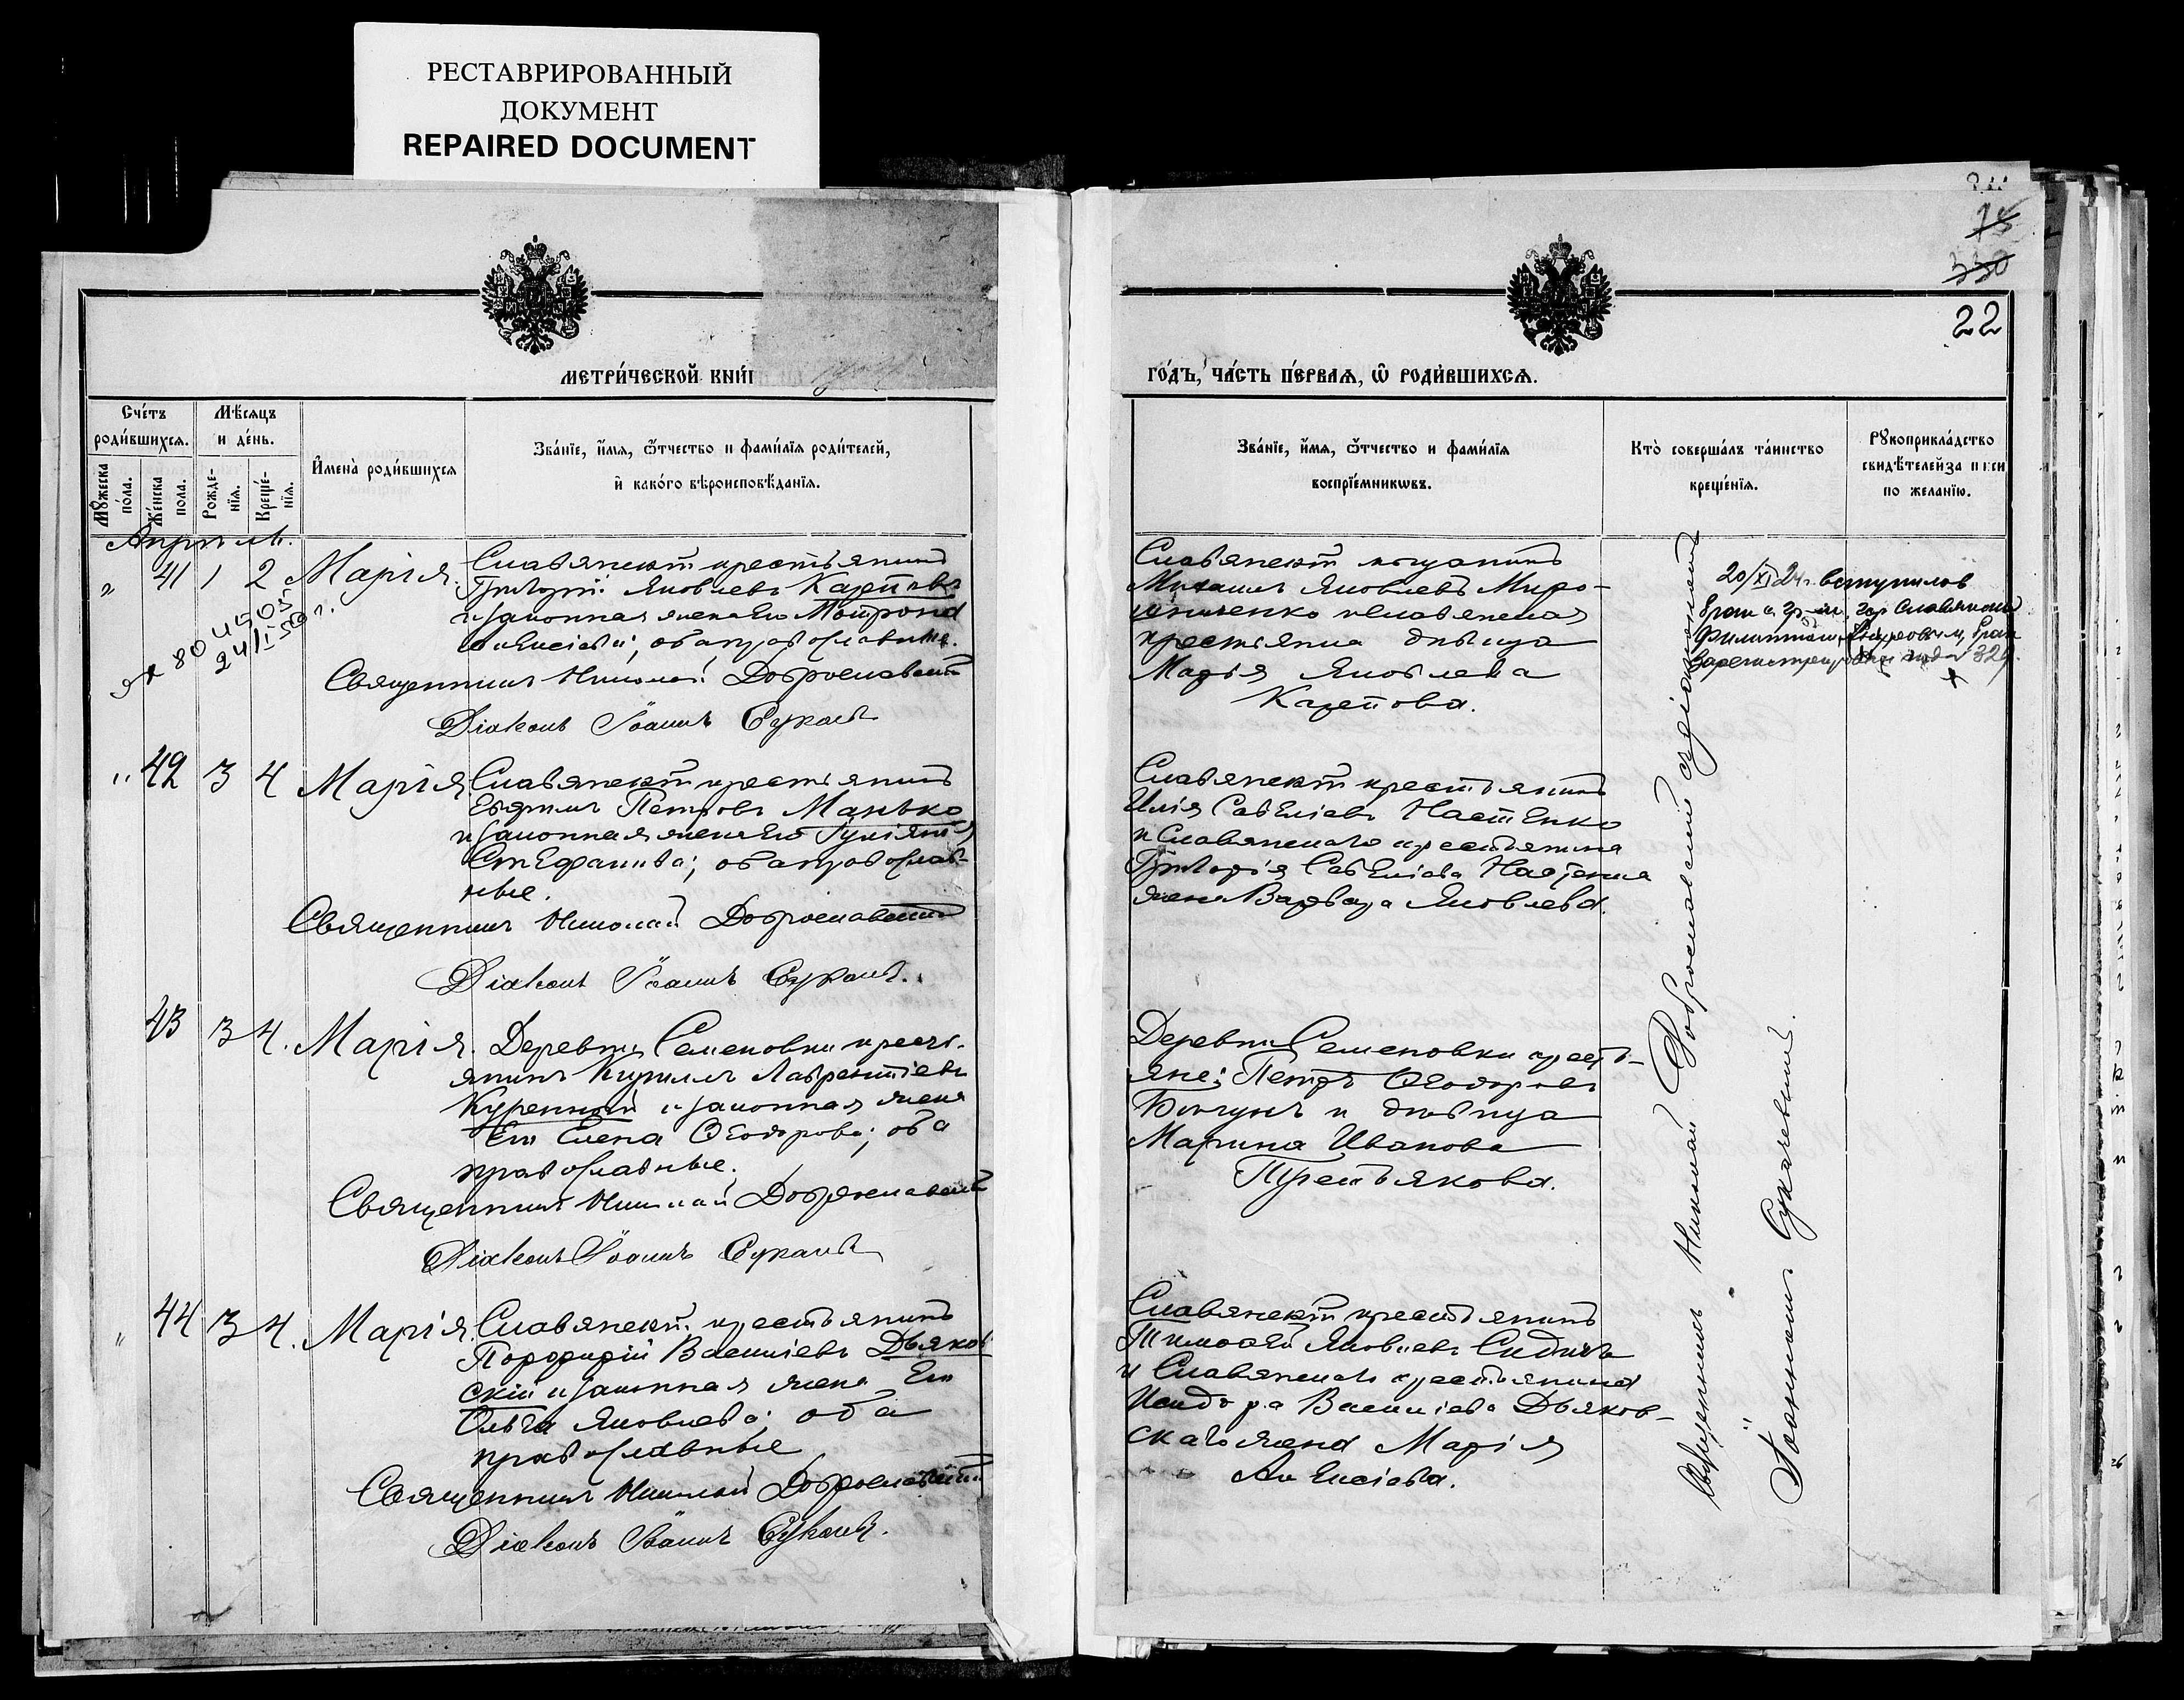 РЕСТАВРИРОВАННЫЙ
ДОКУМЕНТ
REPAIRED DOCUMENT
МЕТРИ́ЧЕСКОЙ КНИ́Г
Сче́тъ
роди́вшихсѧ.
Мѣ́сяцъ
и де́нь.
Мꙋ́жеска
по́ла.
Же́нска
пола.
Рожде-
нїѧ.
Креще́-
нїѧ.
И҆мена̀ роди́вшихсѧ
Зва́нїе, и҆́мѧ, ѻ҆́тчество и фами́лїѧ роди́телей,
и҆ како́го вѣроисповѣ́данїѧ.
Апрѣль.
" 41 1 2 Марія.
Славянскій крестьянинъ
Григорій Яковлевъ Карповъ
и законная жена его Матрона
Алексіева; оба православные.
ЯЯ 80 4505
24/I 59 г.
Священникъ Николай Доброславскій
Діаконъ Іоаннъ Сукач
" 42 3 4 Марія
Славянскій крестьянинъ
Петровъ Манько
и законная жена его Іуліанія
Стефанова; оба православ-
ные.
Священникъ Николай Доброславскій
Діаконъ Іоаннъ Сукач
43 3 4. Марія.
Деревни Семеновки кресть-
янинъ Кириллъ Лаврентіевъ
Куренной и законная жена
его Елена Ѳеодорова; оба
православные.
Священникъ Николай Доброславскій
Діаконъ Іоаннъ Сукач
" 44 3 4. Марія.
Славянскій крестьянинъ
Порфирій Василіевъ Дьяков
скій и законная жена Его
Ольга Яковлева; оба
православные
Священникъ Николай Доброславскій
Діаконъ Іоаннъ Сукач
75
330
22
ГО́ДЪ, ЧА́СТЬ ПЕ́РВАѦ, Ѽ РОДИ́ВШИХСѦ.
Зва́нїе, и҆́мѧ, ѻ҆́тчество и фами́лїѧ
воспрїе́мникѡвъ.
Кто̀ соверша́лъ та́инство
креще́нїѧ.
Рꙋкоприкла́дство
свидѣ́телей за пи си
по жела́нїю.
Славянскій мѣщанинъ
Михаилъ Яковлевъ Миро-
шниченко и Славянская
крестьянка дѣвица
Марія Яковлева
Карпова.
20/XI 24 г. вступила в
брак с гр-м гор Славянска
Филиппом брак
зарегистрирован под № 324.
Славянскій крестьянинъ
Илія Савеліевъ Настенко
и Славянскаго крестьянина
Григорія Савеліева Настенка
жена Варвара Яковлева.
Деревни Семеновки кресть-
яне: Петръ Ѳеодоровъ
и дѣвица
Марина Иванова
Третьякова.
Славянскій крестьянинъ
Тимоѳей Яковлевъ
и Славянскаго крестьянина
Исидора Василіева Дьяков-
скаго жена Марія
Алексіева.
Священникъ Николай Доброславскій съ діакономъ
Іоанномъ Сукачевымъ.